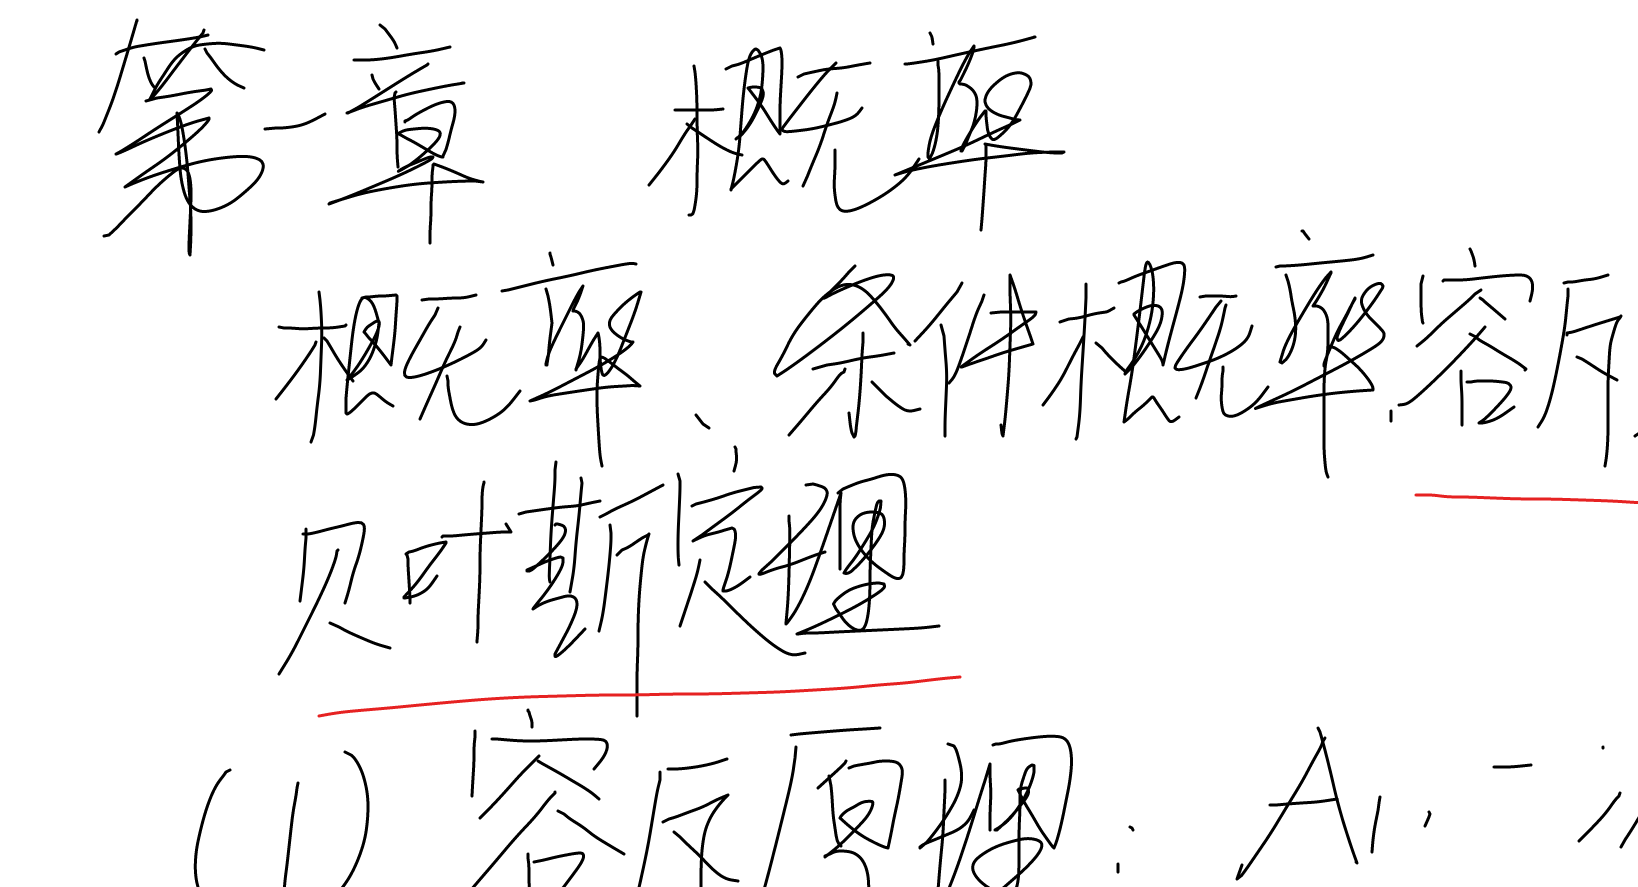 第一章 概率
概率、条件概率,容斥
贝叶斯定理
(1) 容斥原理: A₁, -